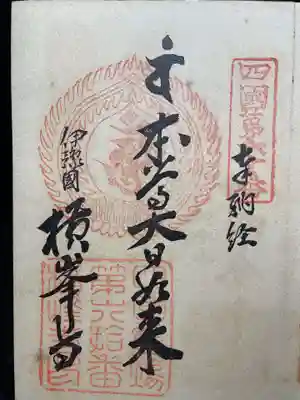 四國第六十番
奉納経
本尊大日如来
伊豫國
横峰寺
第六拾番